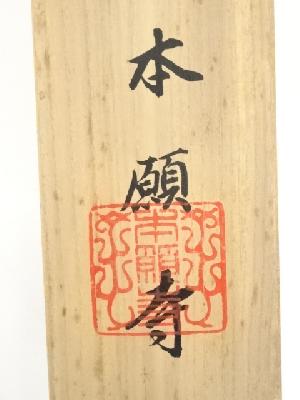 本願寺